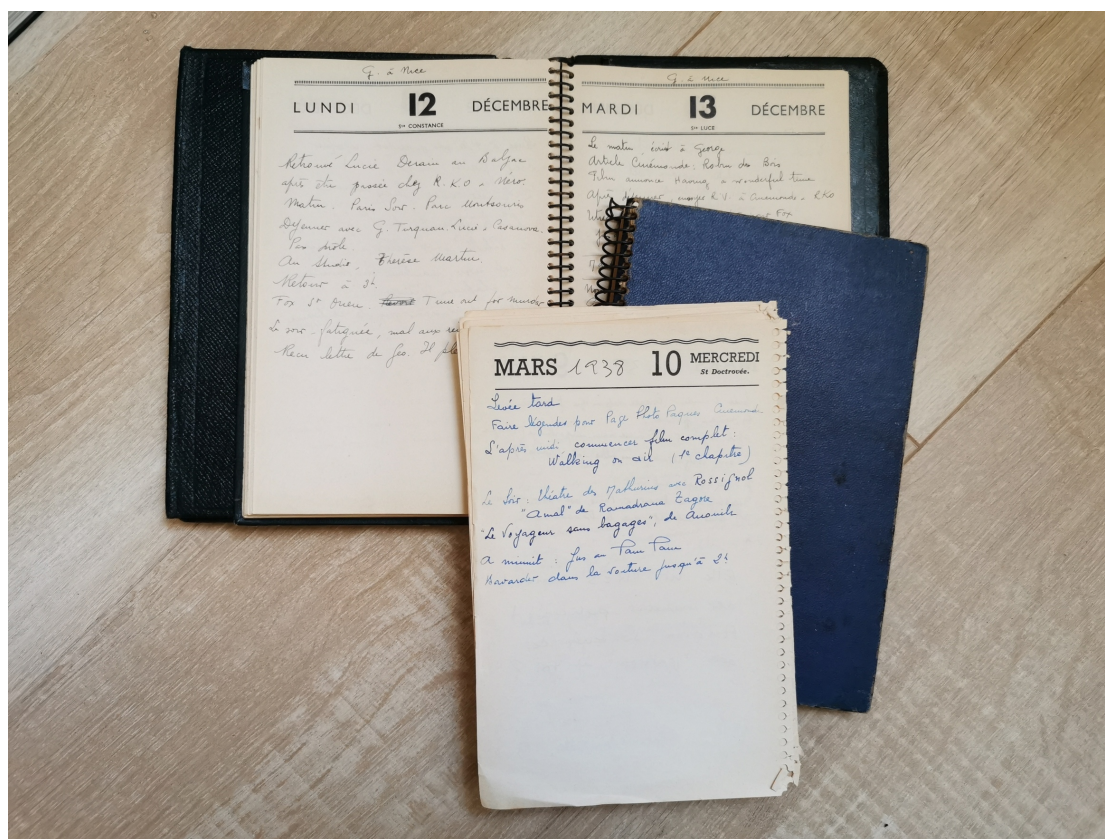 G. à Nice
LUNDI 12 DÉCEMBRE
Ste CONSTANCE
Retrouvé Lucie Derain au Balzac
après être passée chez R.K.O
Matin. Paris Soir. Parc Montsouris
Déjeuner avec G. Turquan. Lucie. Casanova.
Pas drôle.
Au Studio, Thérèse Martin.
Retour à 3h.
Fox St Ouen. Time out for murder
Le soir. fatiguée, mal aux
Reçu lettre de Geo. Il
G. à Nice
MARDI 13 DÉCEMBRE
Ste LUCE
Le matin écrit à George
Article Cinémonde: Robin des Bois
Film annonce Having a wonderful time
Après R.V. à Cinémonde. RKO
Fox
MARS 1938 10 MERCREDI
St Doctrovée.
Levée tard
Faire légendes pour Page Photo Paques Cinémonde
L'après midi commencer film complet:
Walking on air (1e chapitre)
Le Soir: théatre des Mathurins avec Rossignol
"Amal" de Ramadrana Tagore
"Le Voyageur sans bagages", de Anouilh
A minuit: Jus au Pam Pam
Bavarder dans la voiture jusqu'à 2h